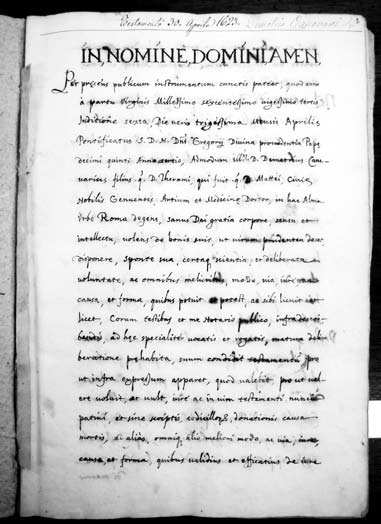 Testamenti 30. Aprilis 1623.
IN NOMINE DOMINI AMEN.
Per præsens publicum instrumentum cunctis pateat, quod anno
à partu Virginis Millessimo sexcentesimo vigessimo tertio
Indictione sexta, Die vero trigessima Mensis Aprilis
Pontificatus S. D. N. Dñi Gregorij Divina providentia Papę
decimi quinti Anno tertio, Admodum Ill. D. Demetrius Cane-
varius filius q. D. Therami, qui fuit q. D. Mattei, Civis
Nobilis Genuensis, Artium et Medicinę Doctor, in hac Alma
Urbe Roma degens, sanus Dei gratia corpore, sensu et
intellectu, volens de bonis suis, ut virum prudentem decet
disponere, sponte sua, certaq. scientia, et deliberata
voluntate, ac omnibus melioribus modo, via, iure
causa, et forma, quibus potuit et potest, ac sibi licuit et
licet, Coram testibus et me Notario publico, infrascri-
ad hęc specialiter vocatis et rogatis, matura deli-
beratione pręhabita, suum condidit testamentum pro
ut infra expressum apparet, quod valebit, pro ut val-
ere voluit, ac vult, iure ac in vim testamenti nuncu-
pativi, et sine scriptis, donationis causa
mortis, ac alias, omniq. alio meliori modo, ac via, iure
causa, et forma, quibus validius et efficatius de iure